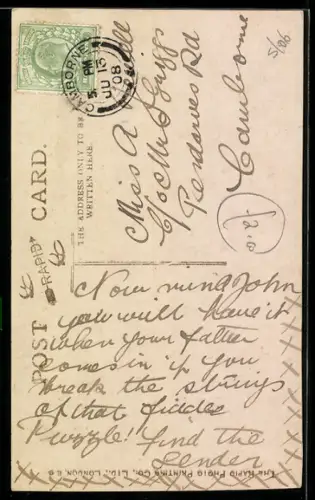 CAMBORNE
5 PM
JU 13
08
POST CARD.
"RAPID"
THE ADDRESS ONLY TO BE
WRITTEN HERE.
Miss A
C/o Mr J Griggs
Pendarves Rd
Camborne
5/06
Now mind John
you will have it
when your father
comes in if you
break the strings
of that fiddle
Puzzle!! find the
sender
THE RAPID PHOTO PRINTING CO., LTD., LONDON E.C.